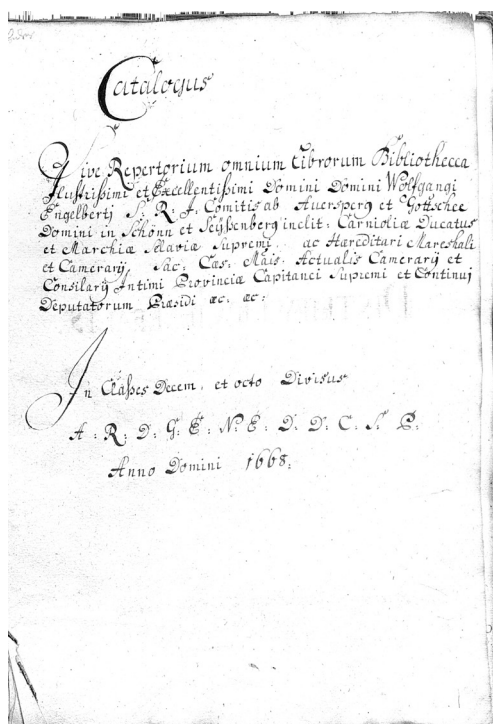 Catalogus
Sive Repertorium omnium Librorum Bibliothecca
Illustrissimi et Excellentissimi Domini Domini Wolfgangi
Engelbertj S: R: I: Comitis ab Auersperg et Gottschee
Domini in Schönn et Seÿssenberg inclit: Carnioliæ Ducatus
et Marchiæ Sclaviæ Supremi ac Hæreditari Mareshali
et Camerarij, Sac: Cæs: Mais: Actualis Camerarÿ et
Consilarÿ Intimi Provinciæ Capitanei Supremi et Continuj
Deputatorum Præsidi æc: æc:
In Classes Decem, et octo Divisus
A: R: D: G: E: N: E: D: D: C: S: P:
Anno Domini 1668: